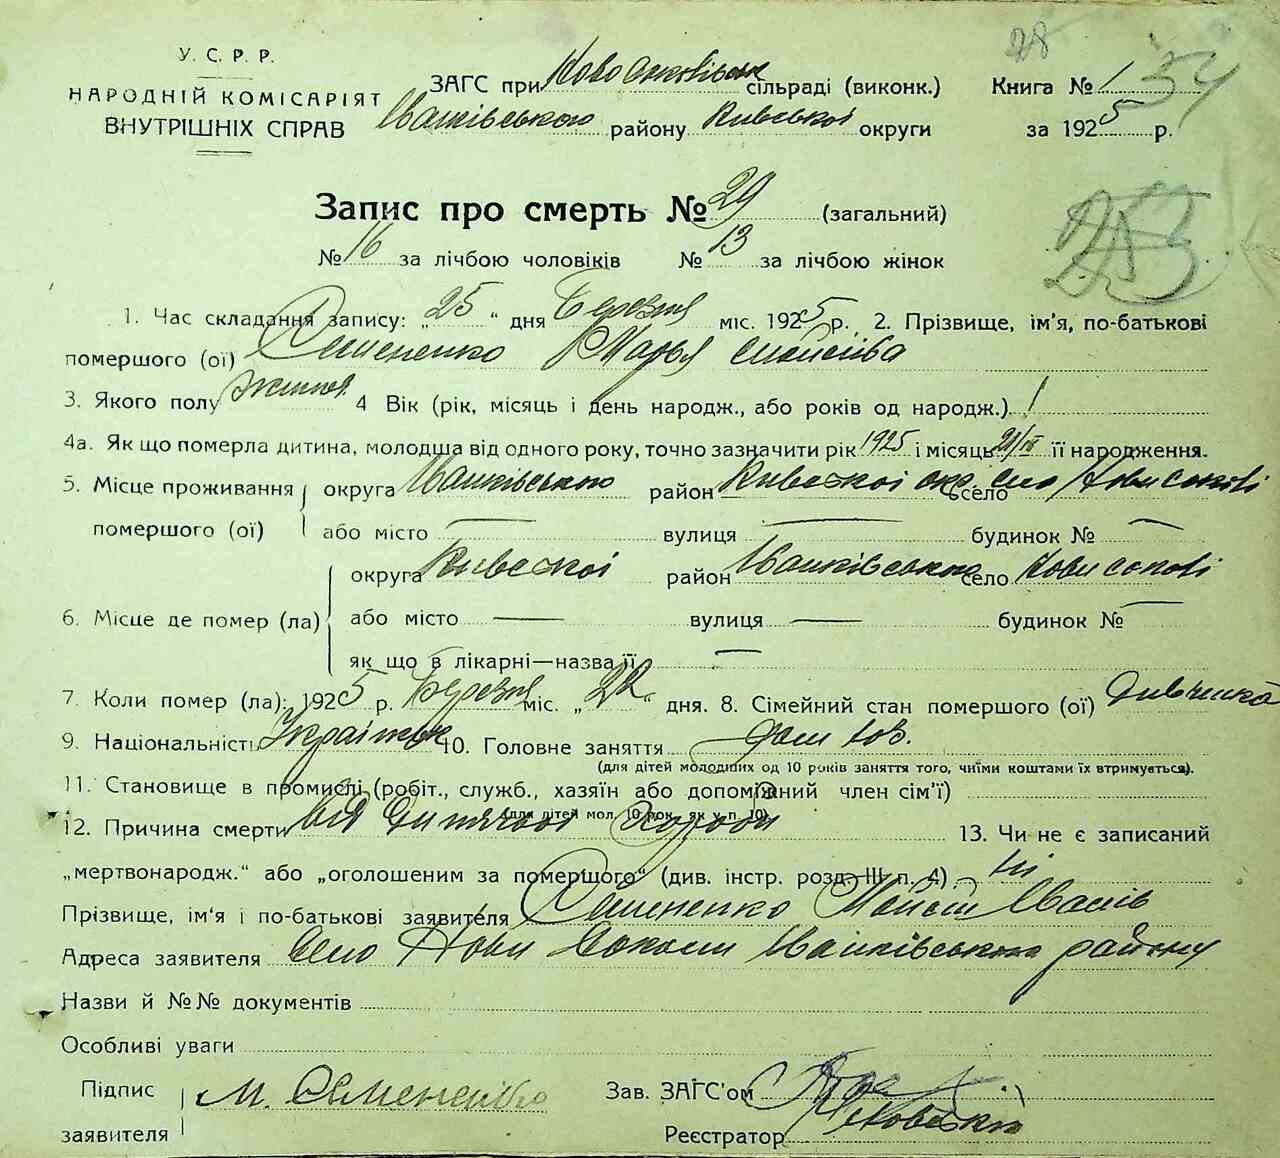 28
У. С. Р. Р.
НАРОДНІЙ КОМІСАРІЯТ
ВНУТРІШНІХ СПРАВ
ЗАГС при сільраді (виконк.)
Іванківського району Київської округи
Книга № 1 54
за 1925 р.
Запис про смерть № 29 (загальний)
№ 16 за лічбою чоловіків № 13 за лічбою жінок
1. Час складання запису: „25“ дня Березня міс. 1925 р., 2. Прізвище, ім'я, по-батькові
помершого (ої) Семененко Марья Мойсіїва
3. Якого полу 4 Вік (рік, місяць і день народж., або років од народж.) 1
4а. Як що померла дитина, молодша від одного року, точно зазначити рік 1925 і місяць її народження.
5. Місце проживання округа Іванківського район Київської окр. село
помершого (ої) або місто — вулиця — будинок № —
округа Київської район Іванківського село
6. Місце де помер (ла) або місто — вулиця — будинок № —
як що в лікарні—назва її —
7. Коли помер (ла): 1925 р. Березня міс. „22“ дня. 8. Сімейний стан помершого (ої) Дивченка
9. Національність 10. Головне заняття
(для дітей молодших од 10 років заняття того, чиїми коштами їх втримується).
11. Становище в промислі (робіт., служб., хазяїн або допоміжний член сім'ї)
(для дітей мол. 10 рок. як у п. 10)
12. Причина смерти від дитячої хороби 13. Чи не є записаний
„мертвонародж.“ або „оголошеним за помершого“ (див. інстр. розд. III п. 4). Ні
Прізвище, ім'я і по-батькові заявителя Семененко Мойсій Іванів
Адреса заявителя Село Нови Соколи Іванківського району
Назви й №№ документів
Особливі уваги
Підпис заявителя М. Семененко
Зав. ЗАГС'ом
Реєстратор